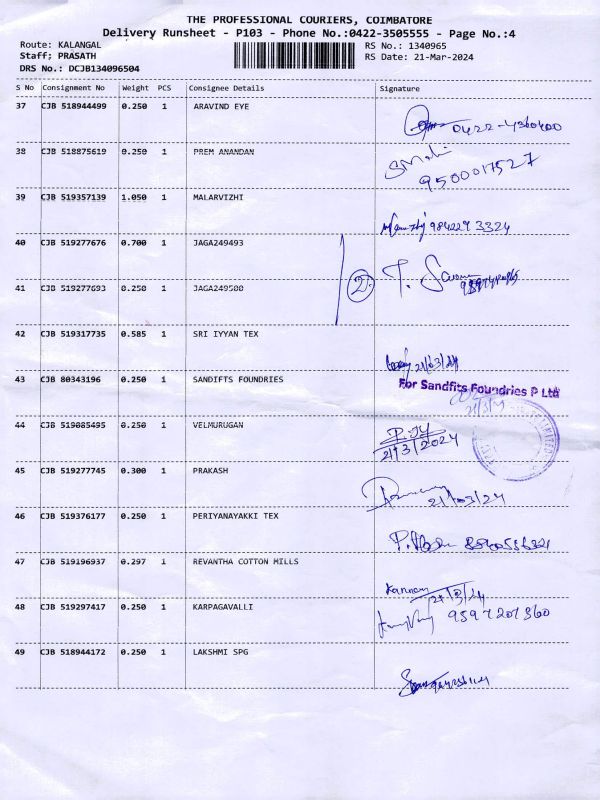 THE PROFESSIONAL COURIERS, COIMBATORE
Delivery Runsheet - P103 - Phone No.:0422-3505555 - Page No.:4
Route: KALANGAL RS No.: 1340965
Staff; PRASATH RS Date: 21-Mar-2024
DRS No.: DCJB134096504
S No Consignment No Weight PCS Consignee Details Signature
37 CJB 518944499 0.250 1 ARAVIND EYE
0422-4360400
38 CJB 518875619 0.250 1 PREM ANANDAN
9500017527
39 CJB 519357139 1.050 1 MALARVIZHI
9842293324
40 CJB 519277676 0.700 1 JAGA249493
41 CJB 519277693 0.250 1 JAGA249500
2
42 CJB 519317735 0.585 1 SRI IYYAN TEX
21/03/24
43 CJB 80343196 0.250 1 SANDIFTS FOUNDRIES
For Sandfits Foundries P Ltd
21/3/24
44 CJB 519085495 0.250 1 VELMURUGAN
21/3/2024
45 CJB 519277745 0.300 1 PRAKASH
21/03/24
46 CJB 519376177 0.250 1 PERIYANAYAKKI TEX
47 CJB 519196937 0.297 1 REVANTHA COTTON MILLS
Kannan
21/3/24
48 CJB 519297417 0.250 1 KARPAGAVALLI
9597201360
49 CJB 518944172 0.250 1 LAKSHMI SPG